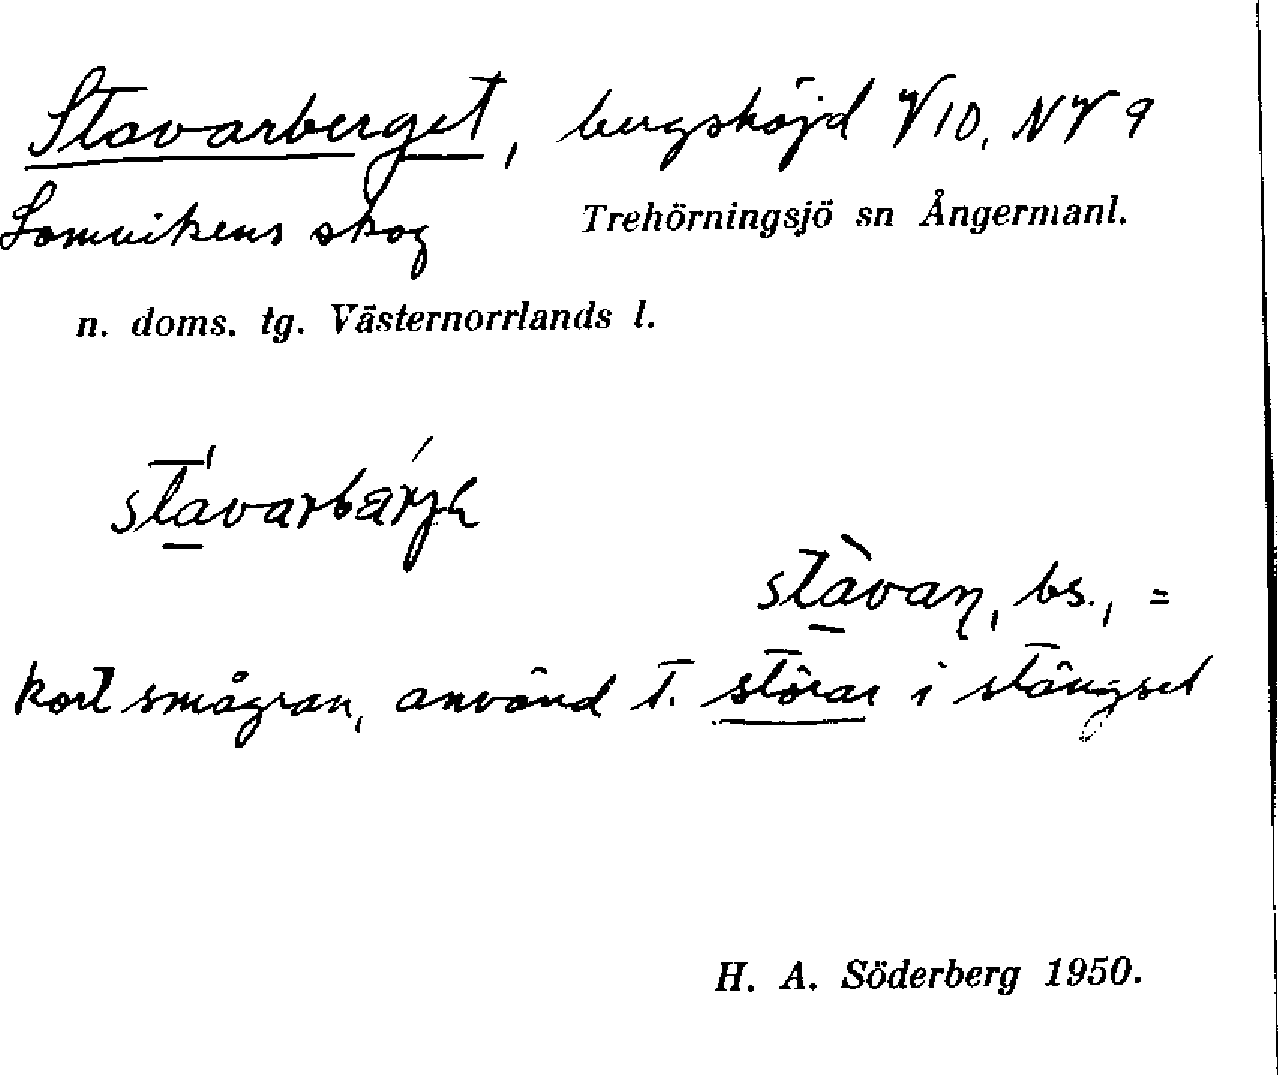 Stavarberget, bergshöjd V10, NV9
Lomvikens skog Trehörningsjö sn Ångermanl.
n. doms. tg. Västernorrlands l.
stavarbärjɛ
stàvaɳ, bs., =
kort smågran, använd t. störar i stängsel
H. A. Söderberg 1950.